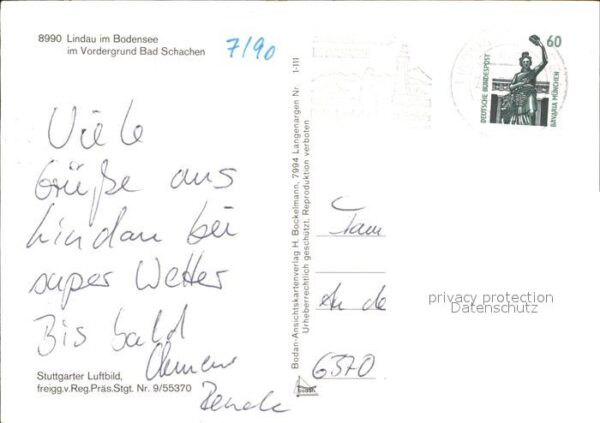 8990 Lindau im Bodensee
im Vordergrund Bad Schachen
7/90
Viele
Grüße aus
Lindau bei
super Wetter
Bis bald
Clemens
Renate
Stuttgarter Luftbild,
freigg.v.Reg.Präs.Stgt. Nr. 9/55370
Bodan-Ansichtskartenverlag H. Bockelmann, 7994 Langenargen Nr. 1-111
Urheberrechtlich geschützt, Reproduktion verboten
60
DEUTSCHE BUNDESPOST
BAVARIA MÜNCHEN
Fam
An de
6370
privacy protection
Datenschutz